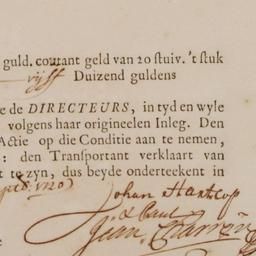 guld. courant geld van 20 stuiv. 't stuk
vijff Duizend guldens
e de DIRECTEURS, in tyd en wyle
volgens haar origineelen Inleg. Den
Actie op die Conditie aan te nemen,
: den Transportant verklaart van
t te zyn, dus beyde onderteekent in
1720
Johan
& Paul
Jean